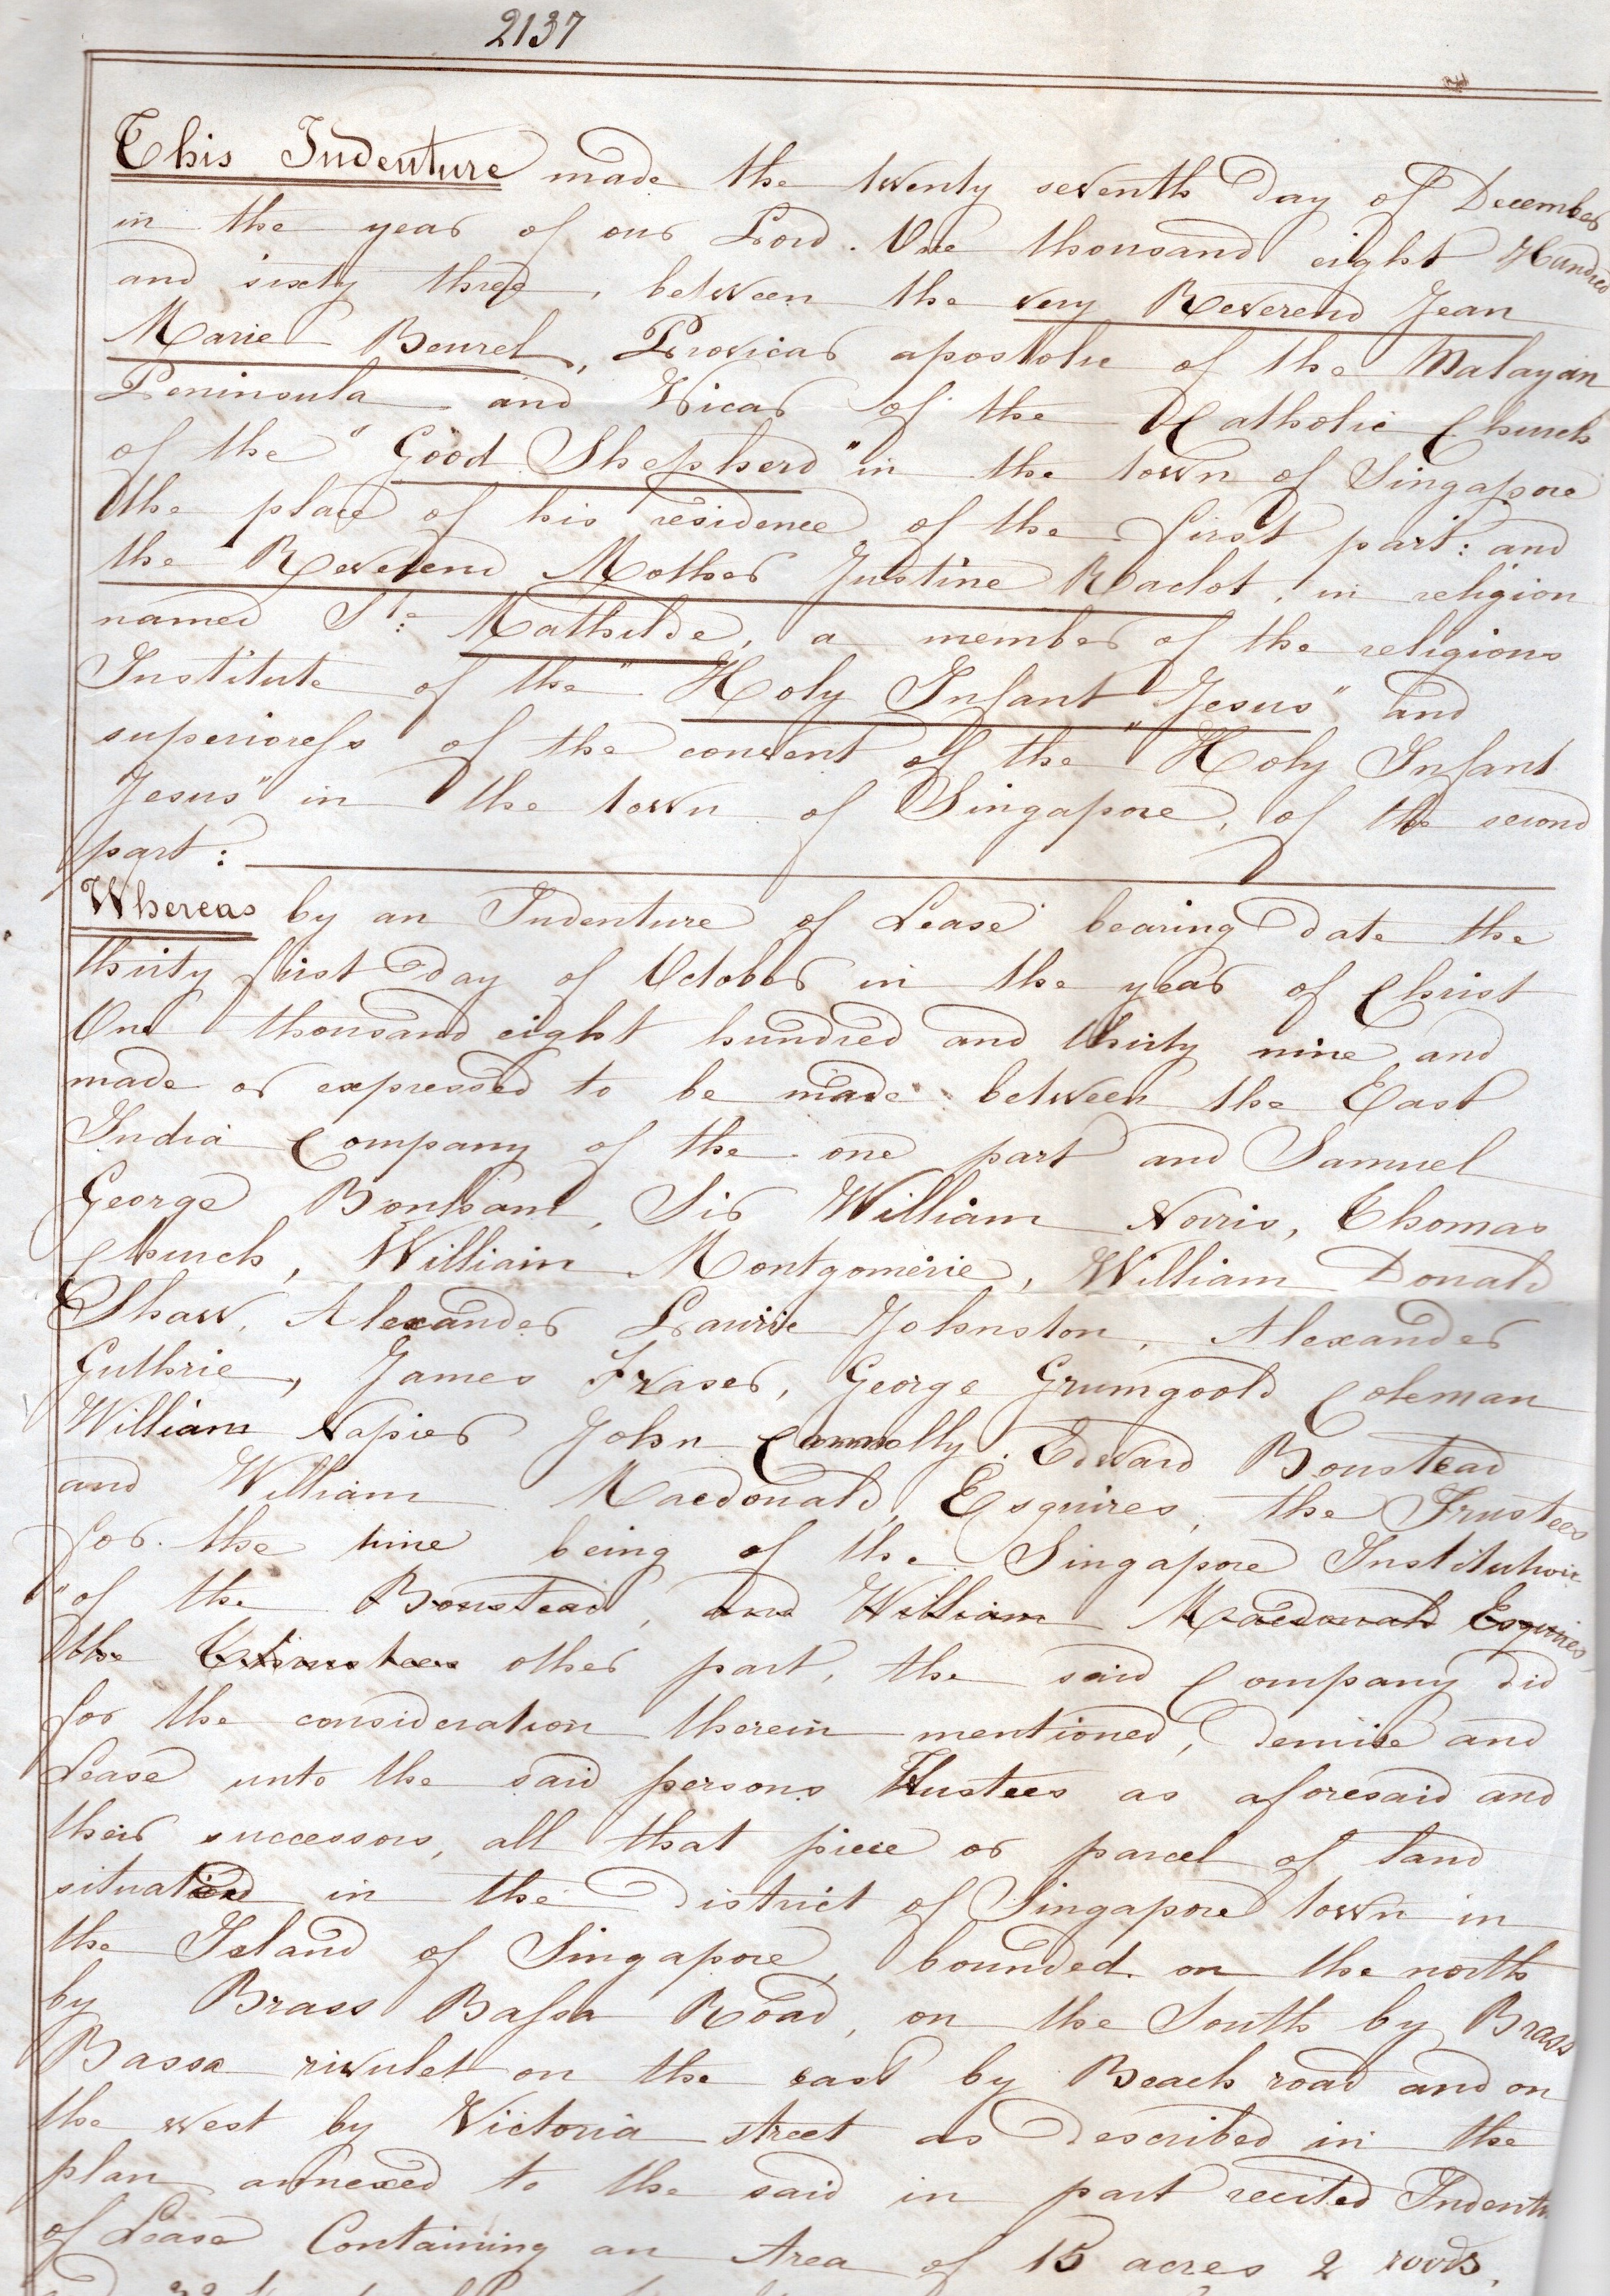 2137
This Indenture made the twenty seventh day of December
in the year of our Lord. One thousand eight Hundred
and sixty three, between the very Reverend Jean
Marie Beurel, Provicar apostolic of the Malayan
Peninsula and Vicar of the Catholic Church
of the "Good Shepherd" in the town of Singapore
the place of his residence of the first part: and
the Reverend Mother Justine Raclot, in religion
named Ste: Mathilde, a member of the religious
Institute of the "Holy Infant Jesus" and
superioress of the convent of the "Holy Infant
Jesus" in the town of Singapore, of the second
part:
Whereas by an Indenture of Lease bearing date the
thirty first day of October in the year of Christ
One thousand eight hundred and thirty nine and
made or expressed to be made between the East
India Company of the one part and Samuel
George Bonham, Sir William Norris, Thomas
Church, William Montgomerie, William Donald
Shaw, Alexander Laurie Johnston, Alexander
Guthrie, James Fraser, George Grumgoold Coleman
William Napier John Connolly. Edward Boustead
and William Macdonald, Esquires, the Trustees
for the time being of the Singapore Institution
"of the Boustead, and William Macdonald Esquires,
the other part, the said Company did
for the consideration therein mentioned, demise and
Lease unto the said persons Trustees as aforesaid and
their successors, all that piece or parcel of land
situated in the District of Singapore town in
the Island of Singapore, bounded on the north
by Brass Bassa Road, on the South by Brass
Bassa rivulet on the east by Beach road and on
the west by Victoria street as described in the
plan annexed to the said in part recited Indentu
of Lease Containing an Area of 15 acres 2 roods,